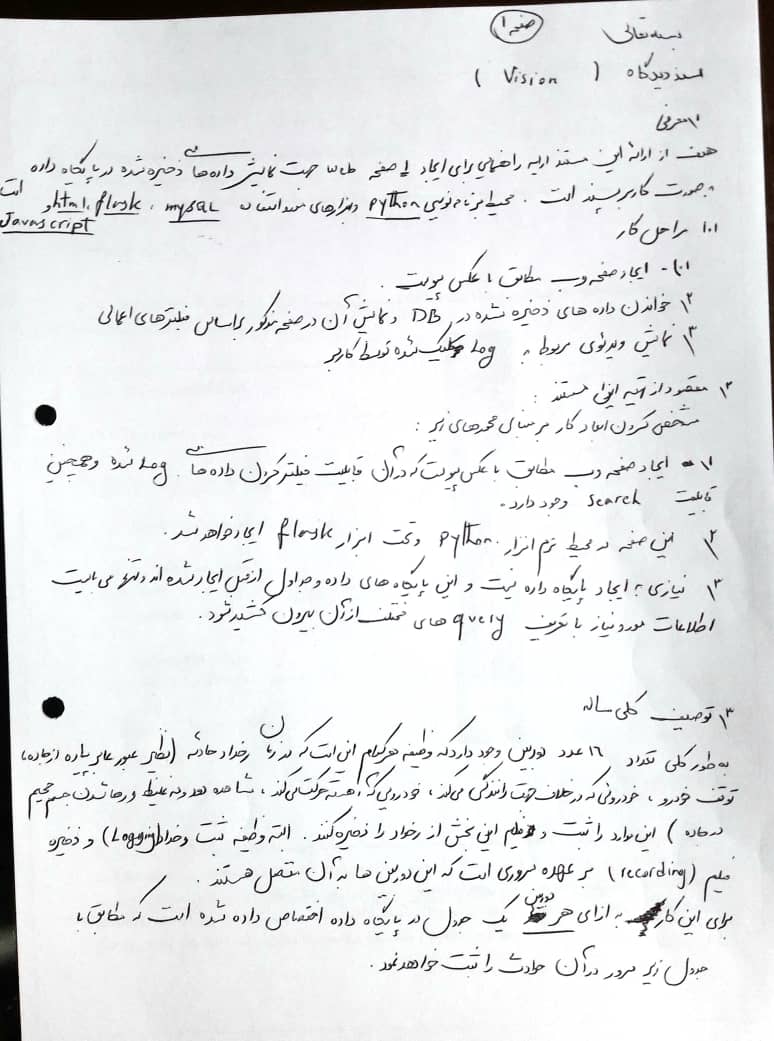 صفحه ۱
بسمه تعالی
سند دیدگاه ( Vision )
۱\ معرفی
هدف از ارائه این مستند ارایه راهنمای برای ایجاد صفحه جهت نمایش داده ها ی ذخیره شده در پایگاه داده
بصورت کاربر پسند است . محیط برنامه نویسی python و ابزارهای مورد استفاده mysql ، flask ، html و Javascript است
۱.۱ مراحل کار
۱\ - ایجاد صفحه وب مطابق با عکس پیوست .
۲\ خواندن داده های ذخیره شده در DB و نمایش آن در صفحه مذکور بر اساس فیلترهای اعمالی
۳\ نمایش ویدئوی مربوط به Log کلیک شده توسط کاربر
۲\ مقصود از تهیه این مستند :
مشخص کردن ابعاد کار بر مبنای محورهای زیر :
۱\ ایجاد صفحه وب مطابق با عکس پیوست که در آن قابلیت فیلتر کردن داده ها ی Log شده و همچنین
قابلیت search وجود دارد .
۲\ این صفحه در محیط نرم افزار python و تحت ابزار flask ایجاد خواهد شد .
۳\ نیازی به ایجاد پایگاه داده نیست و این پایگاه های داده و جداول از قبل ایجاد شده اند و تنها می بایست
اطلاعات مورد نیاز با تعریف query های مختلف از آن بیرون کشیده شود .
۳\ توصیف کلی مساله
به طور کلی تعداد ۱۶ عدد دوربین وجود دارد که وظیفه هر کدام این است که در زمان رخداد حادثه (نظیر عبور عابر پیاده از جاده ،
توقف خودرو ، خودروئی که در خلاف جهت رانندگی می کند ، خودرویی که آهسته حرکت می کند ، مشاهده دود و مه غلیظ و رها شدن جسم حجیم
در جاده ) این موارد را ثبت و فیلم این بخش از رخداد را ذخیره کنند . البته وظیفه ثبت وقایع (Logging) و ذخیره
فیلم (recording) بر عهده سروری است که این دوربین ها به آن متصل هستند .
برای این کار به ازای هر دوربین یک جدول در پایگاه داده اختصاص داده شده است که مطابق با
جدول زیر سرور در آن حوادث را ثبت خواهد نمود .